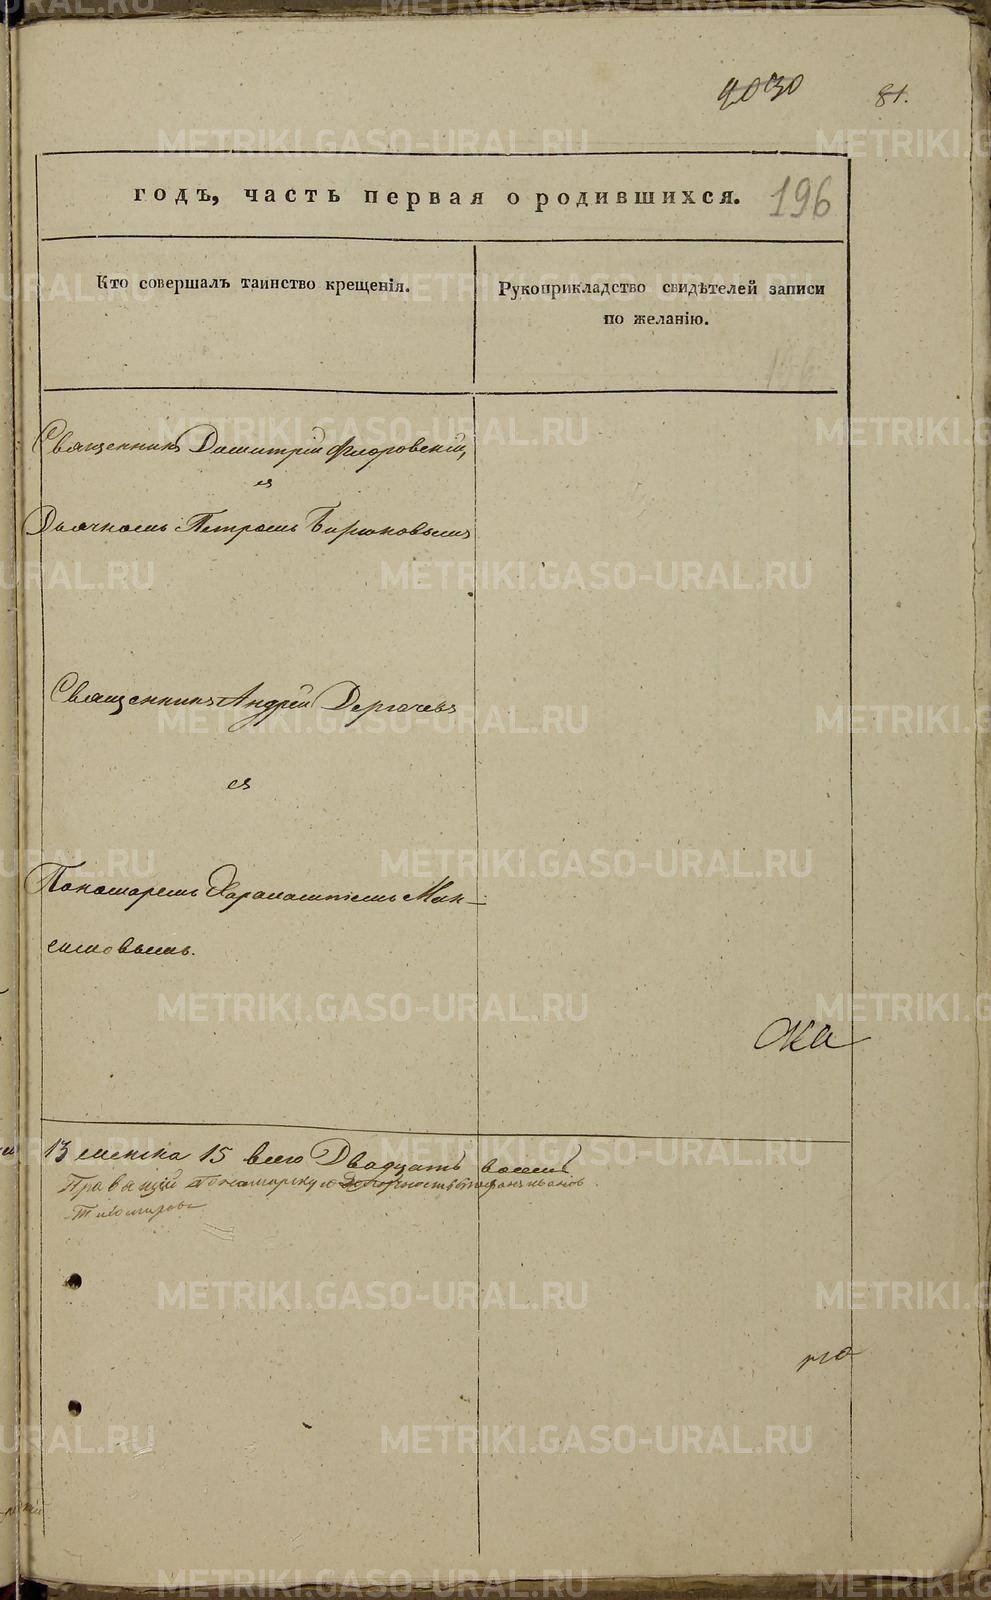 2030
81.
годъ, часть первая о родившихся.
196
Кто совершалъ таинство крещенія.
Рукоприкладство свидѣтелей записи
по желанію.
Священникъ Димитрій Флоровскій,
и
Дьячкомъ Петромъ Бирюковымъ
Священникъ Андрей Дергачевъ
и
Пономаремъ Харалампіемъ Мак-
симовымъ.
13 женска 15 всего Двадцать восемь
Правящій Пономарскую должность Стефанъ Ивановъ
Тихомировъ
METRIKI.GASO-URAL.RU